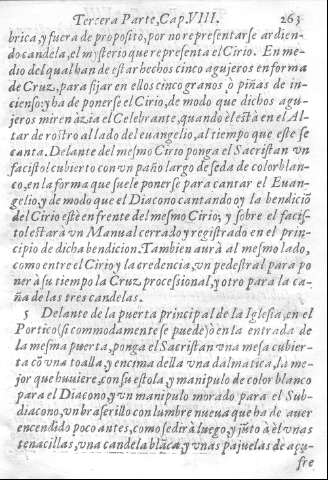 Tercera Parte, Cap. VIII. 263
brica, y fuera de proposito, por no representarse ardien-
do candela, el mysterio que representa el Cirio. En me-
dio del qual han de estar hechos cinco agujeros en forma
de Cruz, para fijar en ellos cinco granos, ò piñas de in-
cienso: y ha de ponerse el Cirio, de modo que dichos agu-
jeros miren àzia el Celebrante, quando èl està en el Al-
tar de rostro al lado del euangelio, al tiempo que este se
canta. Delante del mesmo Cirio ponga el Sacristan vn
facistol cubierto con vn paño largo de seda de color blan-
co, en la forma que suele ponerse para cantar el Euan-
gelio, y de modo que el Diacono cantando oy la bendiciõ
del Cirio estè en frente del mesmo Cirio; y sobre el facis-
tol estarà vn Manual cerrado y registrado en el prin-
cipio de dicha bendicion. Tambien aurà al mesmo lado,
como entre el Cirio y la credencia, vn pedestral para po
ner à su tiempo la Cruz processional, y otro para la ca-
ña de las tres candelas.
5 Delante de la puerta principal de la Iglesia, en el
Portico (si commodamente se puede) ò en la entrada de
la mesma puerta, ponga el Sacristan vna mesa cubier-
ta cõ vna toalla, y encima della vna dalmatica, la me-
jor que huuiere, con su estola, y manipulo de color blanco
para el Diacono, y vn manipulo morado para el Sub-
diacono, vn braserillo con lumbre nueua que ha de auer
encendido poco antes, como se dirà luego, y jũto à èl vnas
tenacillas, vna candela blãca, y vnas pajuelas de açu-
fre